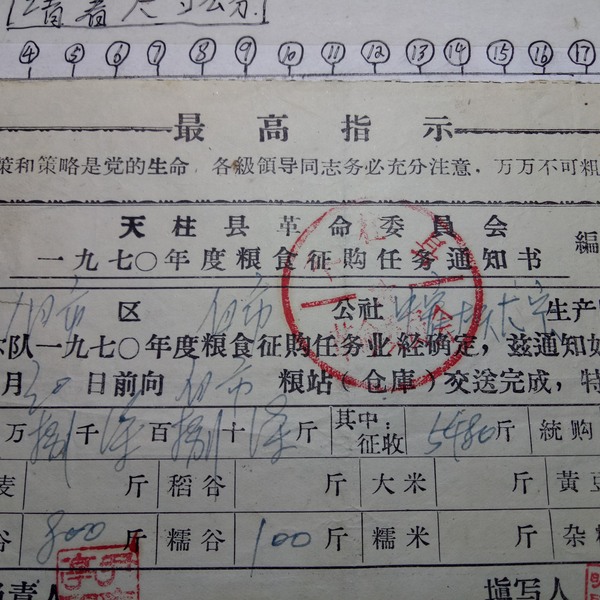 者 尺 公分
④ ⑤ ⑥ ⑦ ⑧ ⑨ ⑩ ⑪ ⑫ ⑬ ⑭ ⑮ ⑯ ⑰
最高指示
策和策略是党的生命，各級領导同志务必充分注意，万万不可粗
天柱县革命委員会
一九七〇年度粮食征购任务通知书 編
市 区 市 公社 生产
队一九七〇年度粮食征购任务业經确定，兹通知如
月 日前向 市 粮站（仓庫）交送完成，特
万捌千 百捌十 斤 其中：征收 5480斤 統购
麦 斤 稻谷 斤 大米 斤 黃豆
谷 800 斤 糯谷 100 斤 糯米 斤 杂粮
負責人 填写人